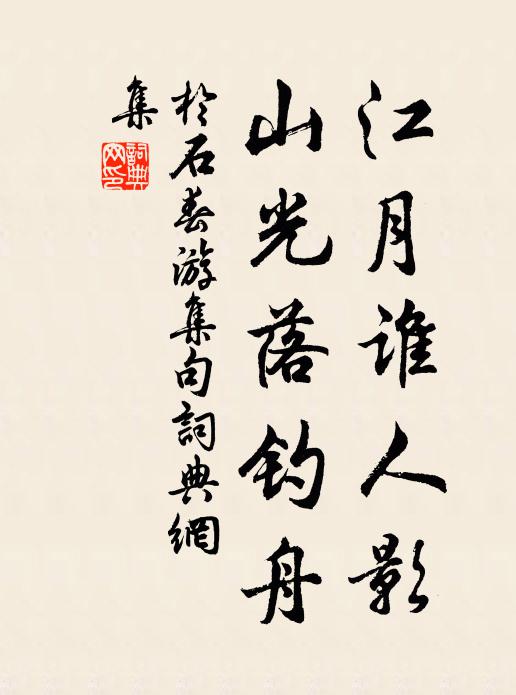 江月谁人影
山光落钓舟
於石春游集句詞典網
集
詞典
网印